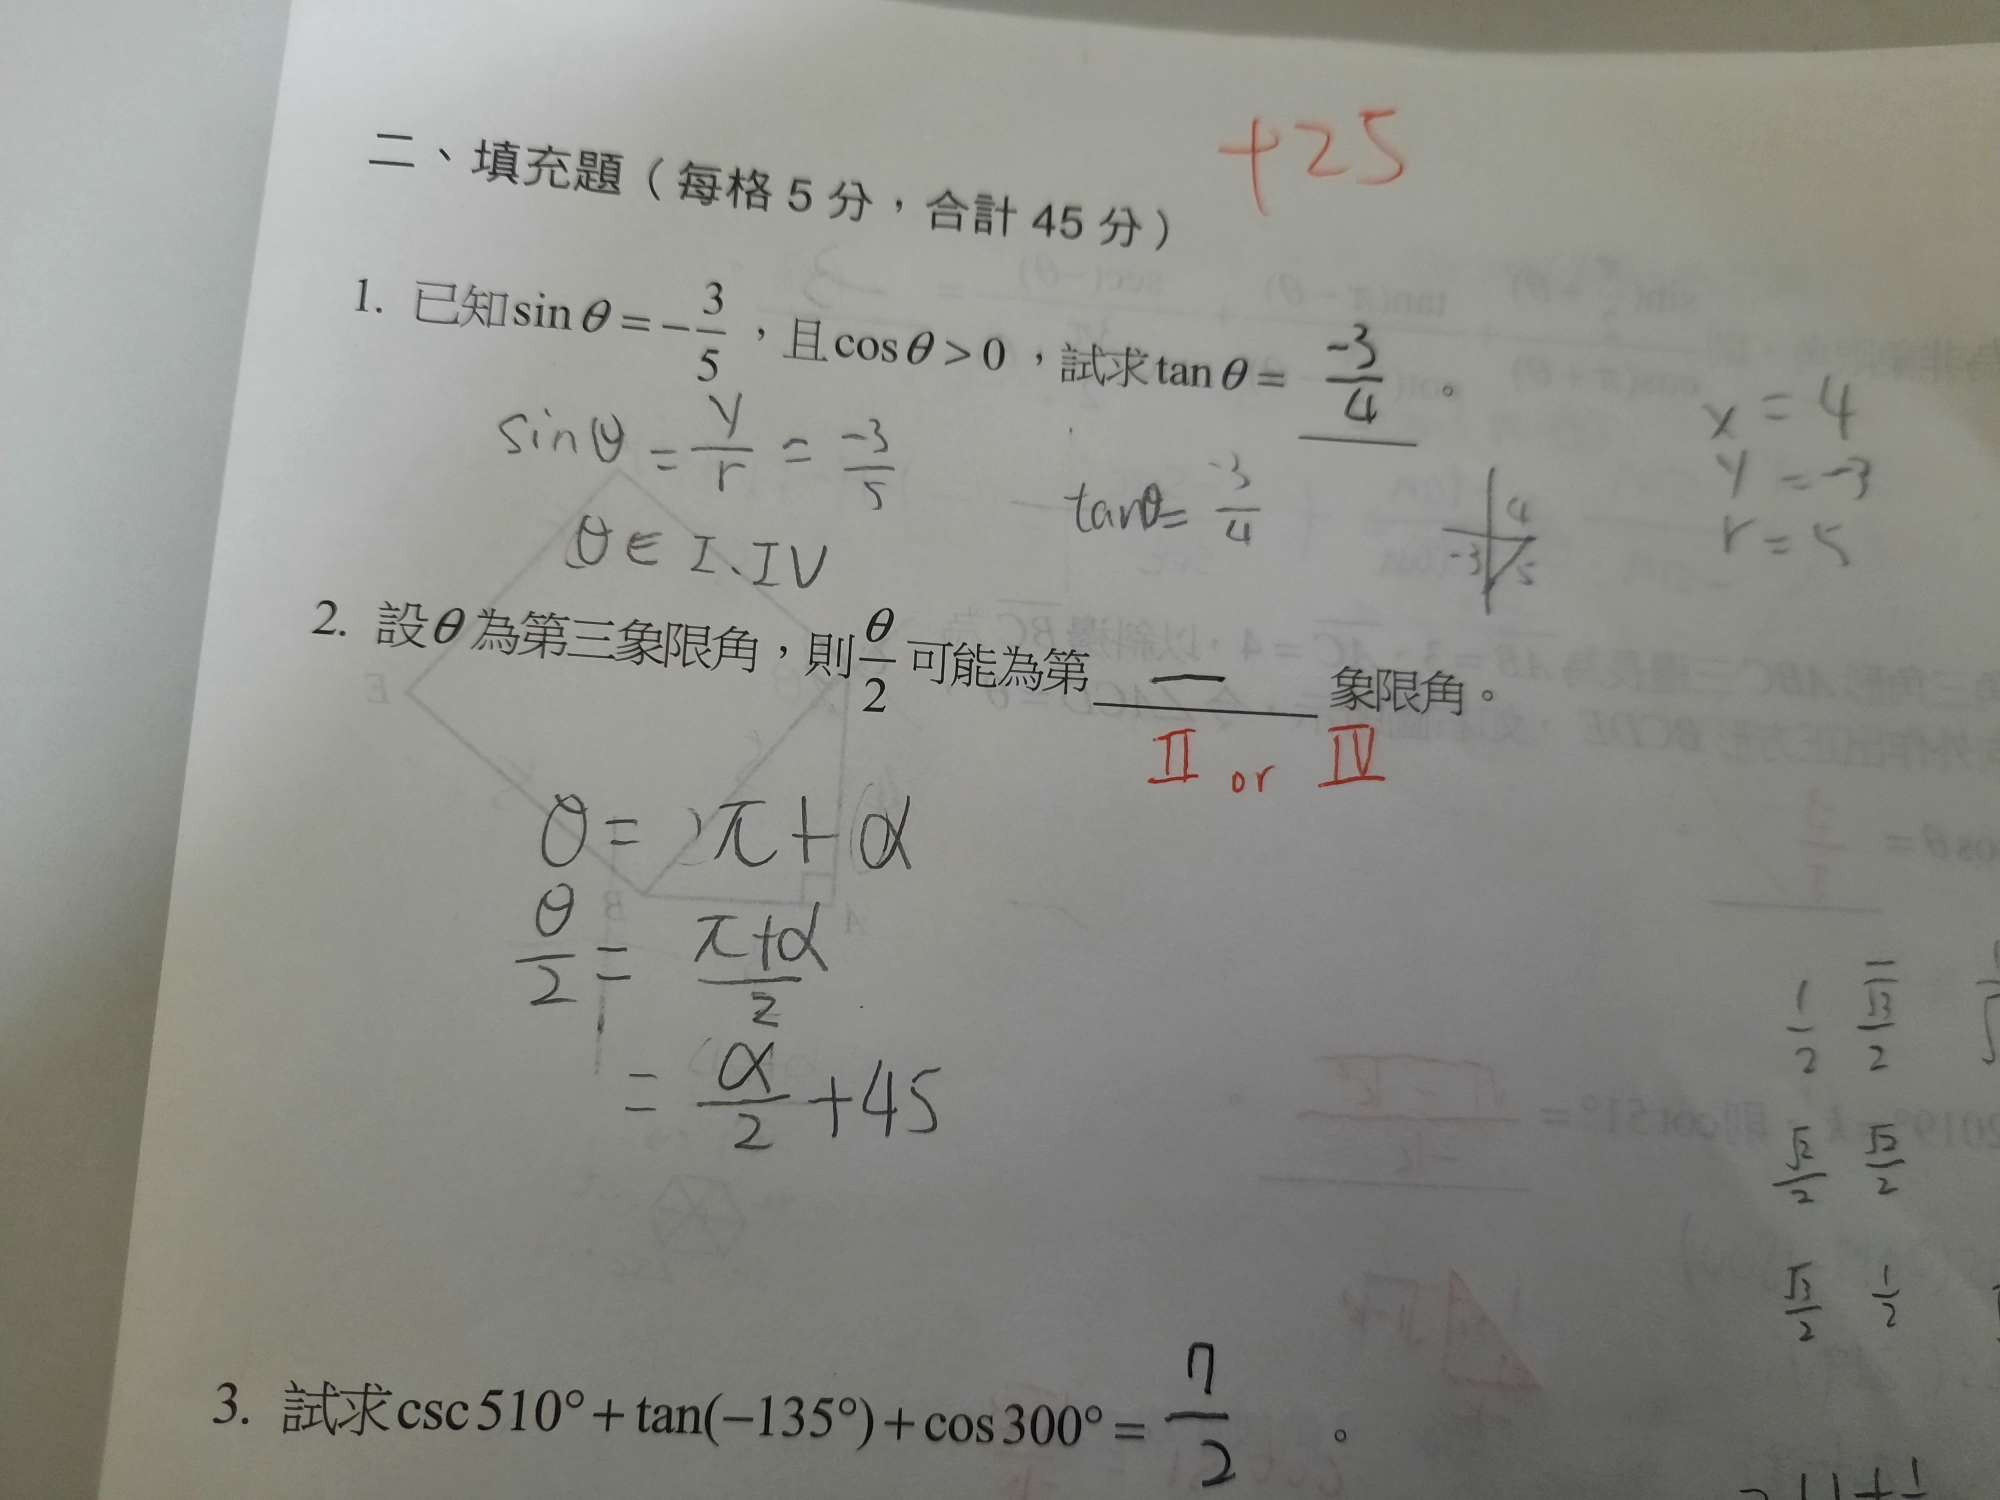 二、填充題（每格 5 分，合計 45 分） +25
1. 已知sinθ=-3/5，且cosθ>0，試求tanθ= -3/4 。
sinθ = y/r = -3/5
θ∈ I、IV
tanθ= -3/4
4
-3 5
x = 4
y = -3
r = 5
2. 設θ為第三象限角，則θ/2可能為第 一 象限角。
II or IV
θ = π+α
θ/2 = π+α/2
= α/2 +45
1/2 √3/2
√2/2 √2/2
√3/2 1/2
3. 試求csc510°+tan(-135°)+cos300°= 7/2 。